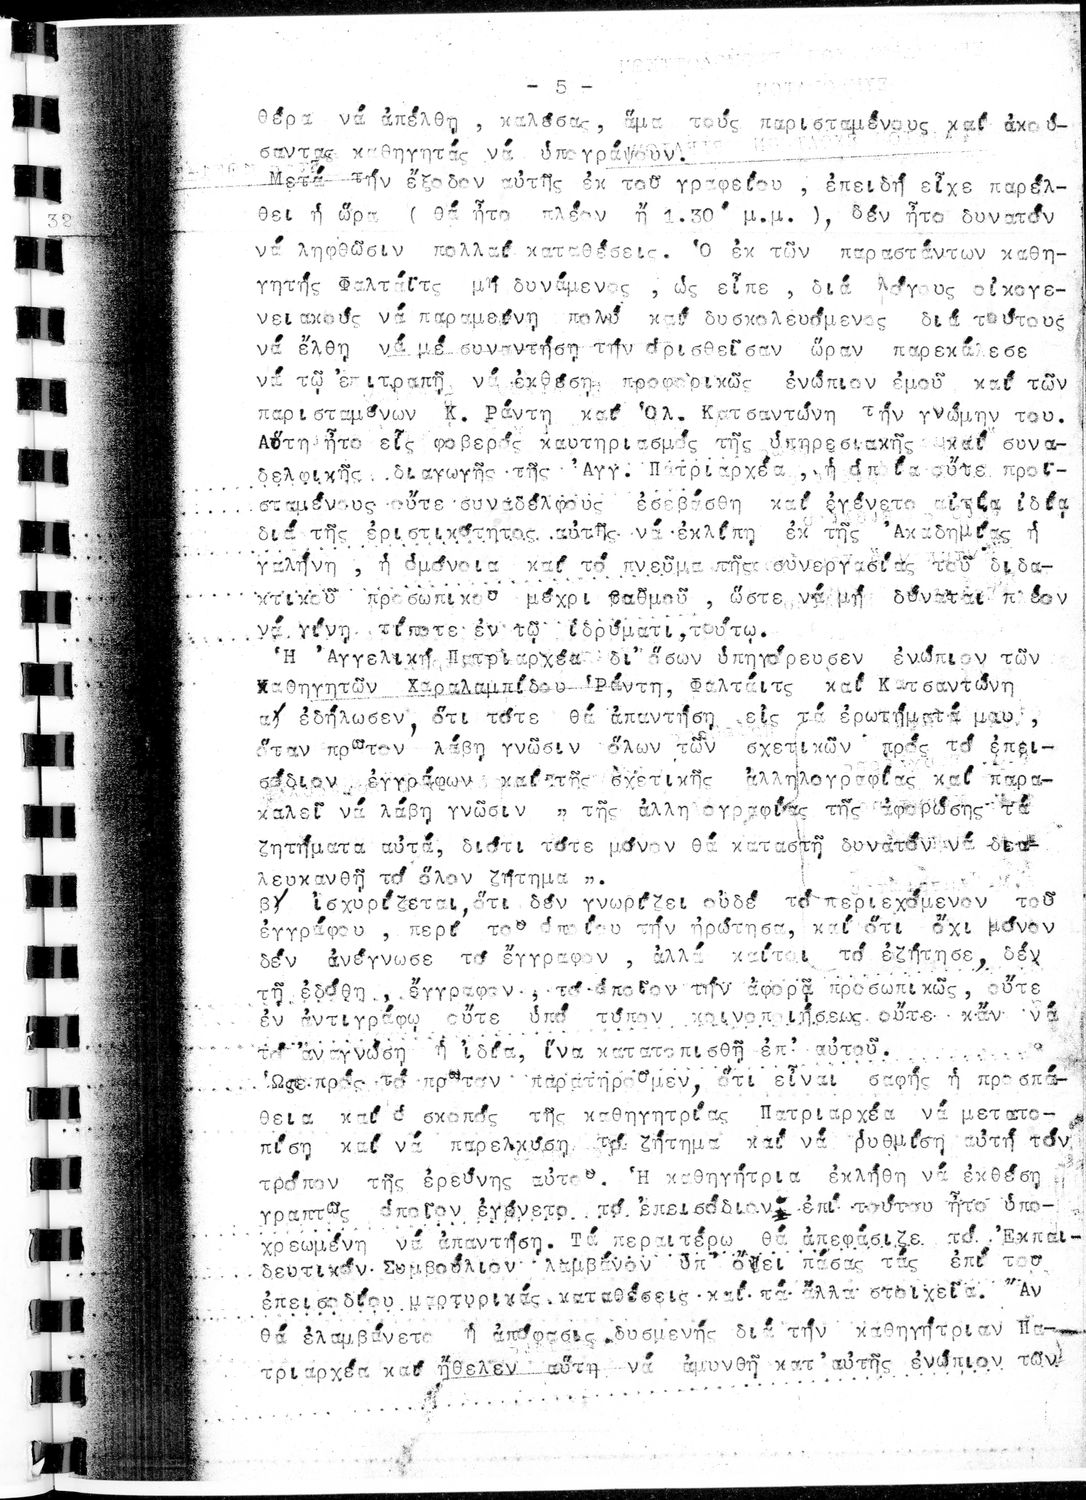 - 5 -
θέρα νά ἀπέλθη , καλέσας, ἅμα τούς παρισταμένους καί ἀκού-
σαντας καθηγητάς νά ὑπογράψουν.
Μετά τήν ἔξοδον αὐτῆς ἐκ τοῦ γραφείου , ἐπειδή εἶχε παρέλ-
θει ἡ ὥρα ( θά ἦτο πλέον ἤ 1.30' μ.μ. ), δέν ἦτο δυνατόν
32
νά ληφθῶσιν πολλαί καταθέσεις. Ὁ ἐκ τῶν παραστάντων καθη-
γητής Φαλτάϊτς μή δυνάμενος , ὡς εἶπε , διά λόγους οἰκογε-
νειακούς νά παραμείνη πολύ καί δυσκολευόμενος διά τούτους
νά ἔλθη νά μέ συναντήση τήν ὁρισθεῖσαν ὥραν παρεκάλεσε
νά τῷ ἐπιτραπῆ νά ἐκθέση προφορικῶς ἐνώπιον ἐμοῦ καί τῶν
παρισταμένων Κ. Ράντη καί Ὀλ. Κατσαντώνη τήν γνώμην του.
Αὕτη ἦτο εἷς φοβερός καυτηριασμός τῆς ὑπηρεσιακῆς καί συνα-
δελφικῆς διαγωγῆς τῆς Ἀγγ. Πατριαρχέα , ἡ ὁποία οὔτε προϊ-
σταμένους οὔτε συναδέλφους ἐσεβάσθη καί ἐγένετο αἰτία ἰδίᾳ
διά τῆς ἐριστικότητος αὐτῆς νά ἐκλίπη ἐκ τῆς Ἀκαδημίας ἡ
γαλήνη , ἡ ὁμόνοια καί τό πνεῦμα τῆς συνεργασίας τοῦ διδα-
κτικοῦ προσωπικοῦ μέχρι βαθμοῦ , ὥστε νά μή δύναται π έον
νά γίνη τίποτε ἐν τῷ ἱδρύματι,τούτῳ.
Ἡ Ἀγγελική Πατριαρχέα δι' ὅσων ὑπηγόρευσεν ἐνώπιον τῶν
Καθηγητῶν Χαραλαμπίδου Ράντη, Φαλτάϊτς καί Κατσαντώνη
α) ἐδήλωσεν, ὅτι τότε θά ἀπαντήση εἰς τά ἐρωτήματά μου ,
ὅταν πρῶτον λάβη γνῶσιν ὅλων τῶν σχετικῶν πρός τό ἐπει-
σόδιον ἐγγράφων καί τῆς σχετικῆς ἀλληλογραφίας καί παρα-
καλεῖ νά λάβη γνῶσιν " τῆς ἀλλη ογραφίας τῆς ἀφορώσης τά
ζητήματα αὐτά, διότι τότε μόνον θά καταστῆ δυνατόν νά δια-
λευκανθῆ τό ὅλον ζήτημα ".
β) ἰσχυρίζεται,ὅτι δέν γνωρίζει οὐδέ τό περιεχόμενον τοῦ
ἐγγράφου , περί τοῦ ὁποίου τήν ἠρώτησα, καί ὅτι ὄχι μόνον
δέν ἀνέγνωσε τό ἔγγραφον , ἀλλά καίτοι τό ἐζήτησε, δέν
τῆ ἐδόθη , ἔγγραφον , τό ὁποῖον τήν ἀφορᾷ προσωπικῶς, οὔτε
ἐν ἀντιγράφῳ οὔτε ὑπό τύπον κοινοποιήσεως οὔτε κἄν νά
τό ἀναγνώση ἡ ἰδία, ἵνα κατατοπισθῆ ἐπ' αὐτοῦ.
Ὡς πρός τό πρῶτον παρατηροῦμεν, ὅτι εἶναι σαφής ἡ προσπά-
θεια καί ὁ σκοπός τῆς καθηγητρίας Πατριαρχέα νά μετατο-
πίση καί νά παρελκύση τό ζήτημα καί νά ρυθμίση αὐτή τόν
τρόπον τῆς ἐρεύνης αὐτοῦ. Ἡ καθηγήτρια ἐκλήθη νά ἐκθέση
γραπτῶς ὁποῖον ἐγένετο τό ἐπεισόδιον ἐπί τούτου ἦτο ὑπο-
χρεωμένη νά ἀπαντήση. Τά περαιτέρω θά ἀπεφάσιζε τό Ἐκπαι-
δευτικόν Συμβούλιον λαμβάνον ὑπ' ὄψει πάσας τάς ἐπί τοῦ
ἐπεισοδίου μαρτυρικάς καταθέσεις καί τά ἄλλα στοιχεῖα. Ἄν
θά ἐλαμβάνετο ἡ ἀπόφασις δυσμενής διά τήν καθηγήτριαν Πα-
τριαρχέα καί ἤθελεν αὕτη νά ἀμυνθῆ κατ'αὐτῆς ἐνώπιον τῶν